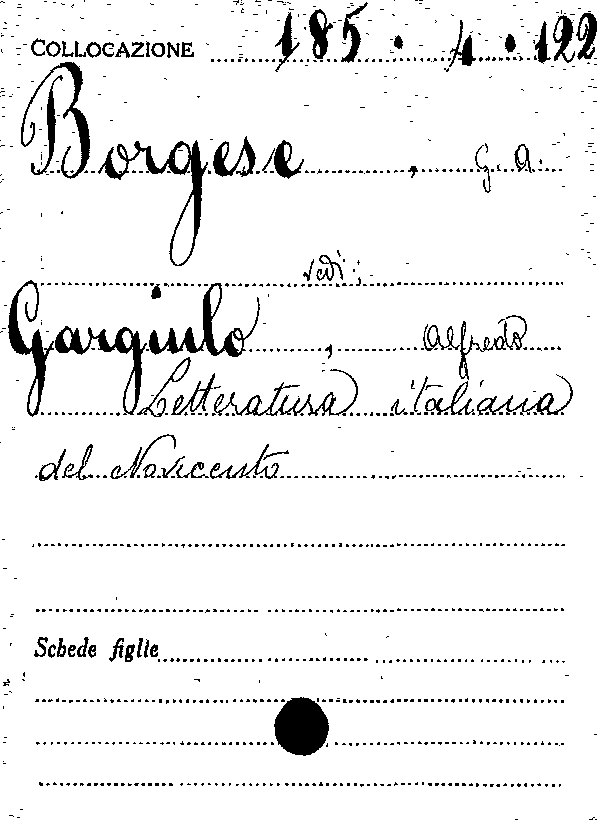 COLLOCAZIONE 185 . 4 . 122
Borgese , G. A.
vedi:
Gargiulo , Alfredo
Letteratura italiana
del Novecento
Schede figlie